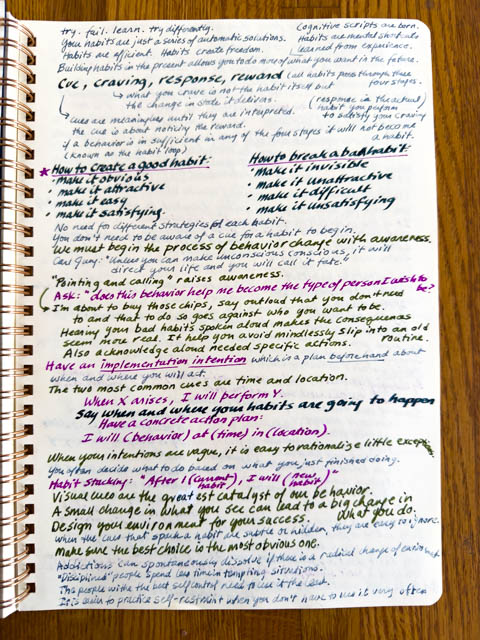 try. fail. learn. try differently.
Cognitive scripts are born.
Your habits are just a series of automatic solutions.
Habits are mental shortcuts
Habits are efficient. Habits create freedom.
learned from experience.
Building habits in the present allows you to do more of what you want in the future.
Cue, craving, response, reward (all habits pass through these
four stages.
what you crave is not the habit itself but
the change in state it delivers.
(response is the actual
habit you perform
to satisfy your craving
cues are meaningless until they are interpreted.
the cue is about noticing the reward.
if a behavior is insufficient in any of the four stages it will not become
a habit.
(known as the habit loop)
* How to create a good habit:
• make it obvious
• make it attractive
• make it easy
• make it satisfying.
How to break a bad habit:
• make it invisible
• make it unattractive
• make it difficult
• make it unsatisfying
No need for different strategies for each habit.
You don't need to be aware of a cue for a habit to begin.
We must begin the process of behavior change with awareness.
Carl Jung: "Unless you can make unconscious conscious, it will
direct your life and you will call it fate."
"Pointing and calling" raises awareness.
Ask: "does this behavior help me become the type of person I wish to
be?
I'm about to buy those chips, say out loud that you don't need
to and that to do so goes against who you want to be.
Hearing your bad habits spoken aloud makes the consequences
seem more real. It help you avoid mindlessly slip into an old
routine.
Also acknowledge aloud needed specific actions.
Have an implementation intention which is a plan beforehand about
when and where you will act.
The two most common cues are time and location.
When X arises, I will perform Y.
Say when and where your habits are going to happen
Have a concrete action plan:
I will (behavior) at (time) in (location).
When your intentions are vague, it is easy to rationalize little
You often decide what to do based on what you just finished doing.
Habit Stacking: "After I (current habit), I will (new habit)"
Visual cues are the greatest catalyst of our behavior.
A small change in what you see can lead to a big change in
what you do.
Design your environment for your success.
when the cues that spark a habit are subtle or hidden, they are easy to ignore.
Make sure the best choice is the most obvious one.
Addictions can spontaneously dissolve if there is a radical change of environment
"Disciplined" people spend less time in tempting situations.
The people with the best self control need to use it the least.
It is easier to practice self-restraint when you don't have to use it very often